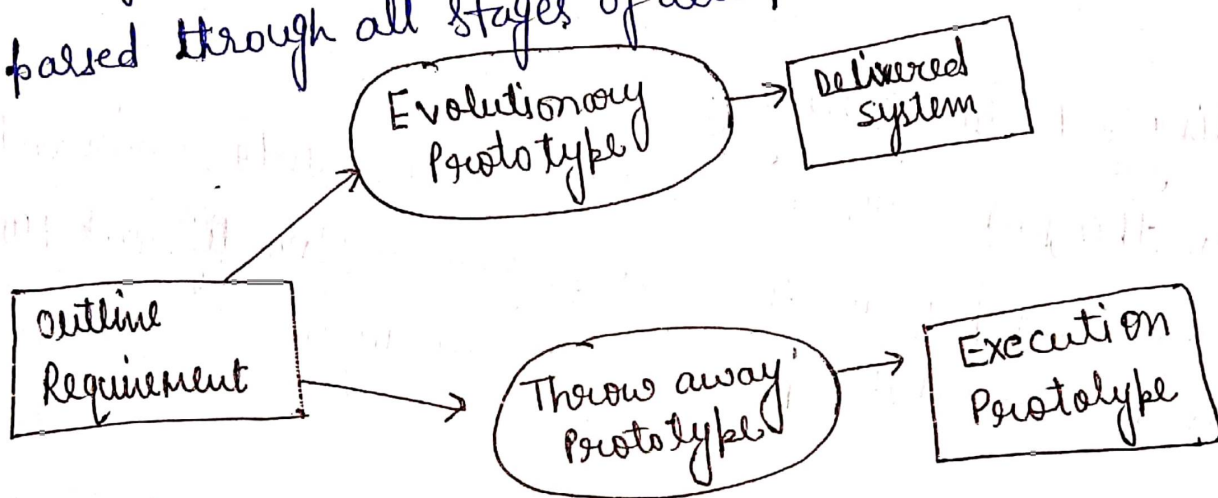 passed through all stages of
Evolutionary
Prototype
Delivered
system
Outline
Requirement
Throw away
Prototype
Execution
Prototype